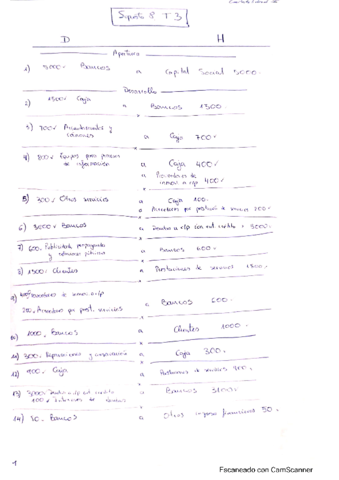 Supuesto 8 T3
D H
Apertura
1) 5000 Bancos a Capital Social 5000
Desarrollo
2) 1300 Caja a Bancos 1300
3) 700 Arrendamientos y
cánones a Caja 700
4) 800 Equipos para procesos
de información a Caja 400
a Proveedores de
inmov. a c/p 400
5) 300 Otros servicios a Caja 100
a Acreedores por prestac. de servicios 200
6) 3000 Bancos a Deudas c/p con ent. crédito 3000
7) 600 Publicidad, propaganda
y relaciones públicas a Bancos 600
8) 1500 Clientes a Prestaciones de servicios 1500
9) 400 Proveedores de inmov. a c/p
200 Acreedores por prest. servicios a Bancos 600
10) 1000 Bancos a Clientes 1000
11) 300 Reparaciones y conservación a Caja 300
12) Caja a Prestaciones de servicios
13) 3000 Deudas c/p ent. crédito
100 Intereses de deudas a Bancos 3100
14) 50 Bancos a Otros ingresos financieros 50
1
Escaneado con CamScanner